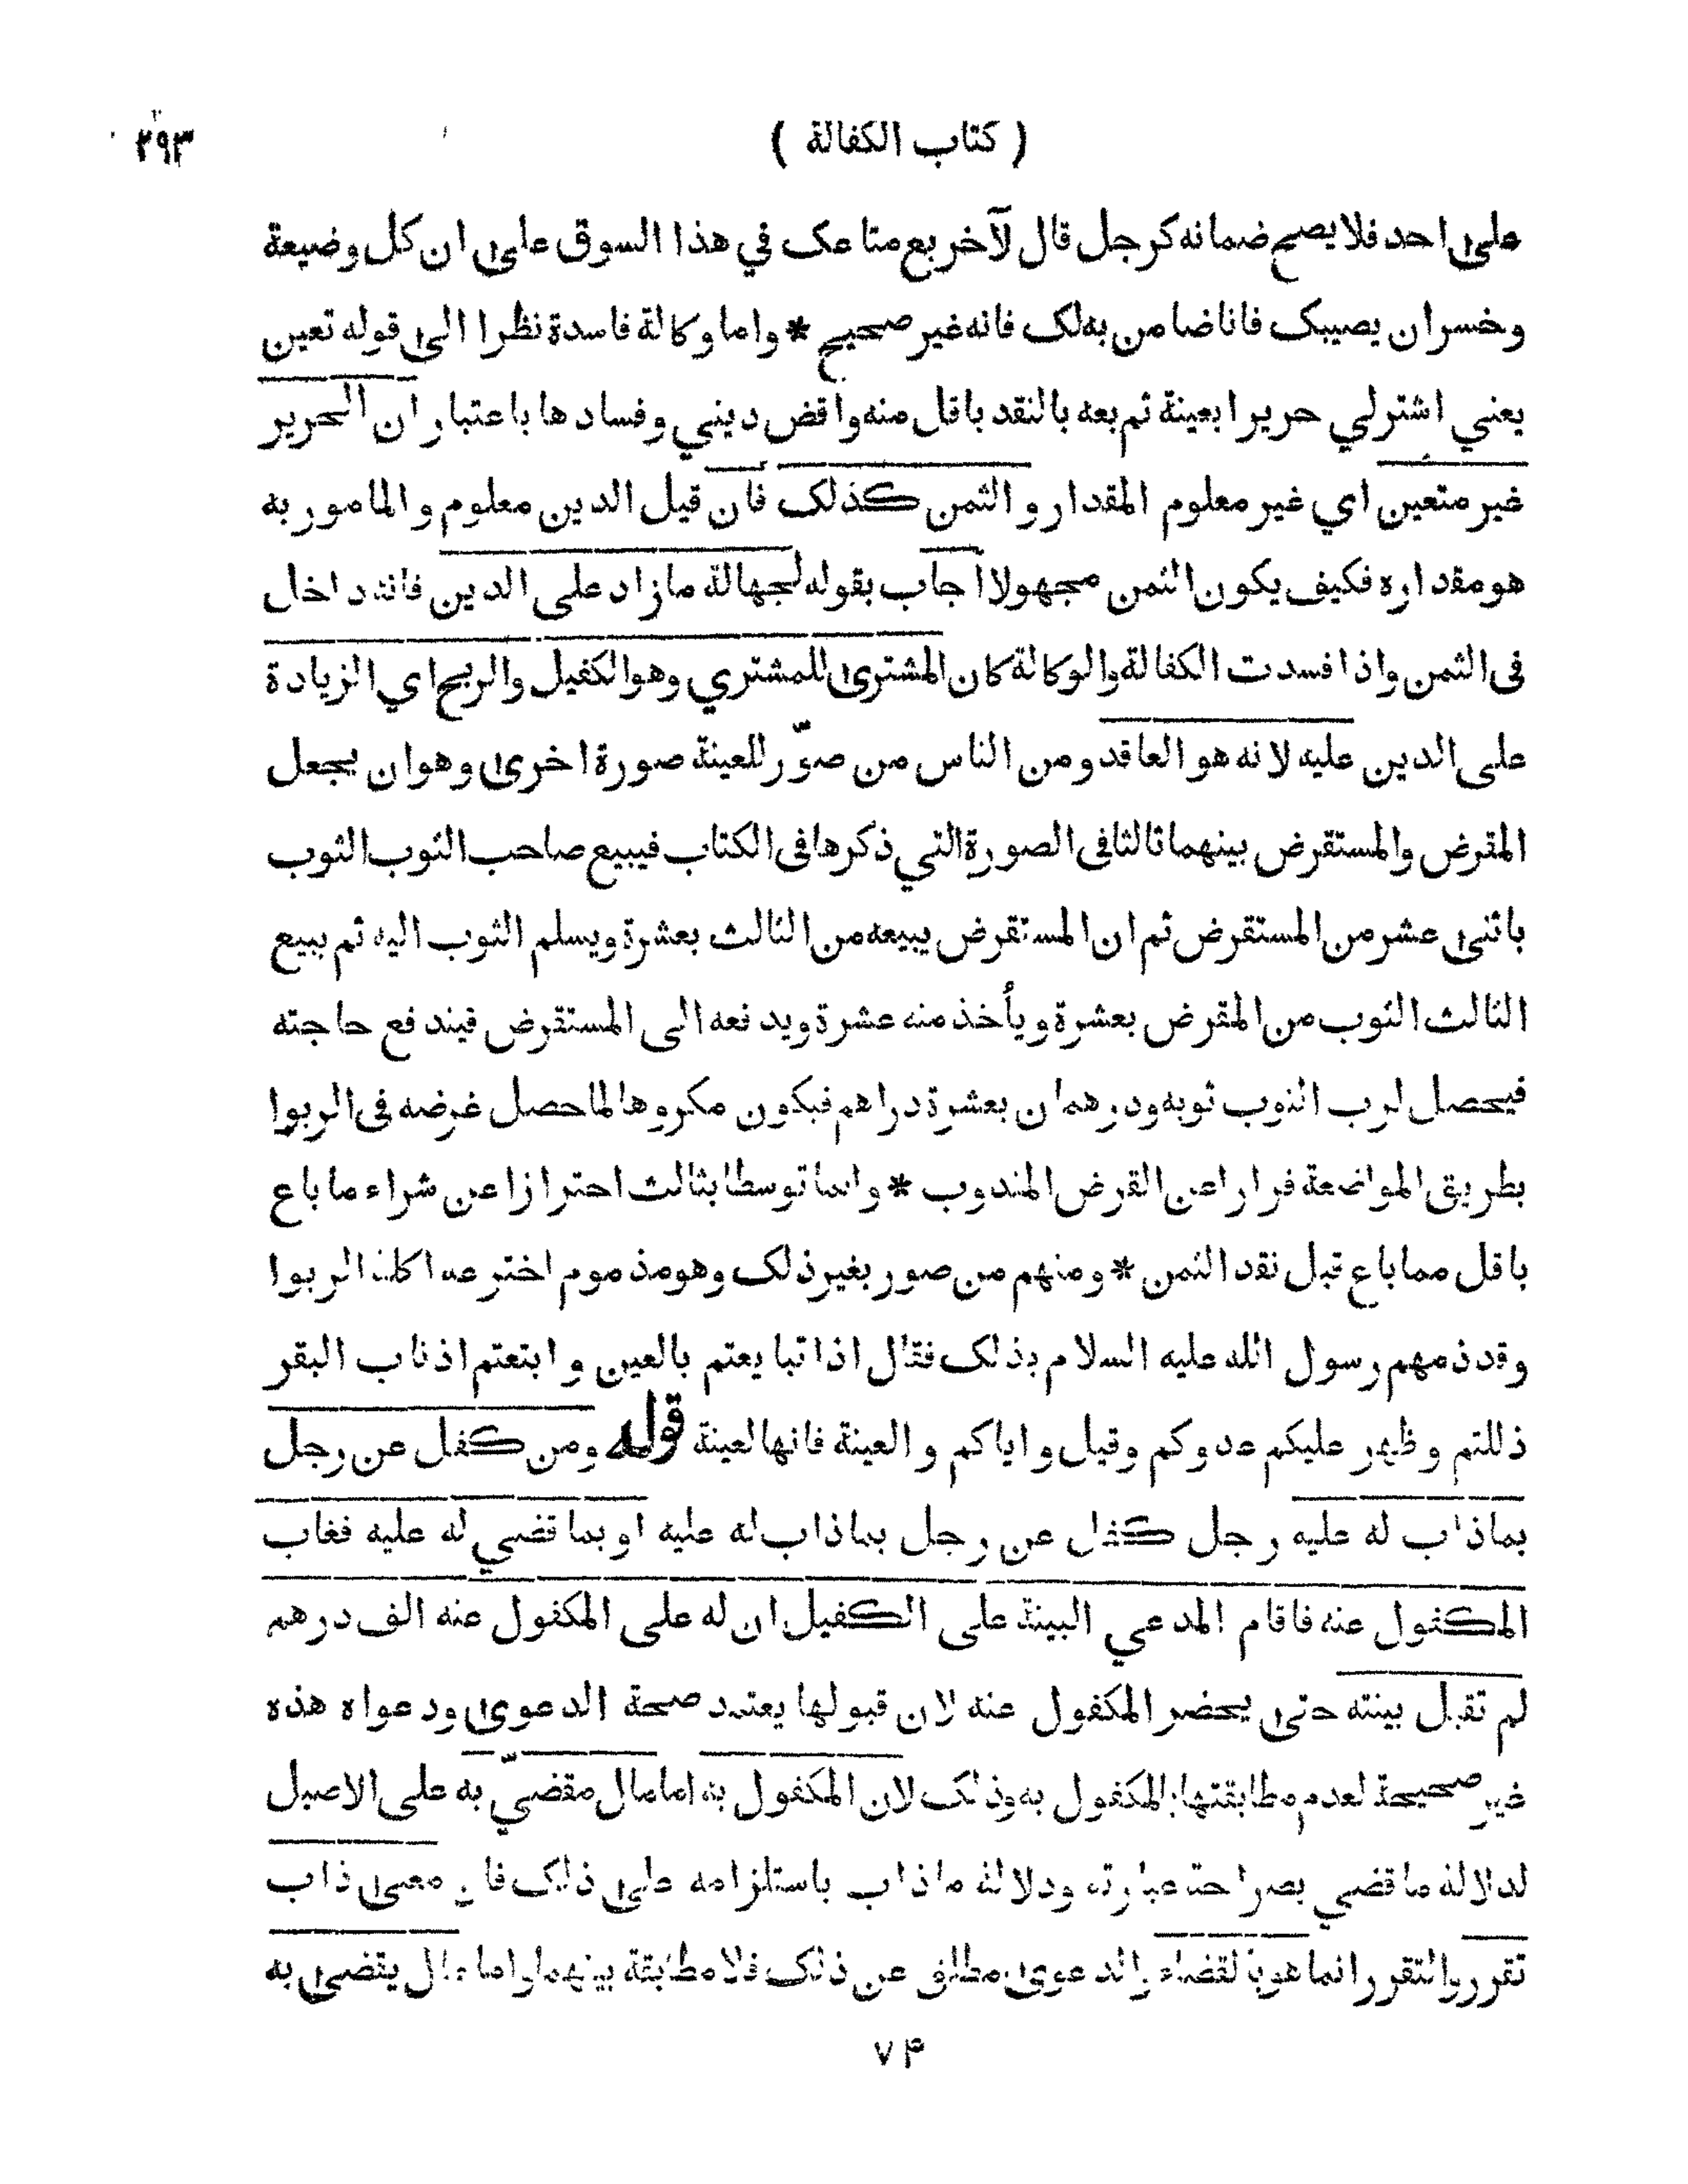 ( كتاب الكفالة ) ٢٩٣
على احد فلا يصح ضمانه كرجل قال لآخر بع متاعك في هذا السوق على ان كل وضيعة
وخسران يصيبك فانا ضامن به لك فانه غير صحيح * واما وكالة فاسدة نظرا الى قوله تعين
يعني اشتر لي حريرا بعينة ثم بعه بالنقد باقل منه واقض ديني وفسادها باعتبار ان الحرير
غير متعين اي غير معلوم المقدار و الثمن كذلك فان قيل الدين معلوم و المامور به
هو مقداره فكيف يكون الثمن مجهولا اجاب بقوله لجهالة ما زاد على الدين فانه داخل
فى الثمن واذا فسدت الكفالة والوكالة كان المشترى للمشتري وهو الكفيل والربح اي الزيادة
على الدين عليه لانه هو العاقد ومن الناس من صوّر للعينة صورة اخرى وهو ان يجعل
المقرض والمستقرض بينهما ثالثا فى الصورة التي ذكرها فى الكتاب فيبيع صاحب الثوب الثوب
باثنى عشر من المستقرض ثم ان المستقرض يبيعه من الثالث بعشرة ويسلم الثوب اليه ثم يبيع
الثالث الثوب من المقرض بعشرة ويأخذ منه عشرة ويدفعه الى المستقرض فيندفع حاجته
فيحصل لرب الثوب ثوبه ودرهمان بعشرة دراهم فيكون مكروها لما حصل غرضه فى الربوا
بطريق المواضعة فرارا عن القرض المندوب * وانما توسطا بثالث احترازا عن شراء ما باع
باقل مما باع قبل نقد الثمن * ومنهم من صور بغير ذلك وهو مذموم اخترعه اكلة الربوا
وقد ذمهم رسول الله عليه السلام بذلك فقال اذا تبايعتم بالعين و ابتعتم اذناب البقر
ذللتم وظهر عليكم عدوكم وقيل واياكم و العينة فانها لعينة قوله ومن كفل عن رجل
بما ذاب له عليه رجل كفل عن رجل بما ذاب له عليه او بما قضي له عليه فغاب
المكفول عنه فاقام المدعي البينة على الكفيل ان له على المكفول عنه الف درهم
لم تقبل بينته حتى يحضر المكفول عنه لان قبولها يعتمد صحة الدعوى ودعواه هذه
غير صحيحة لعدم مطابقتها بالمكفول به وذلك لان المكفول به اما مال مقضيّ به على الاصيل
لدلالة ما قضي بصراحة عبارته ودلالة ما ذاب باستلزامه على ذلك فان معنى ذاب
تقرر والتقرر انما هو بالقضاء والدعوى مطلق عن ذلك فلا مطابقة بينهما واما مال يقضى به
٧۴